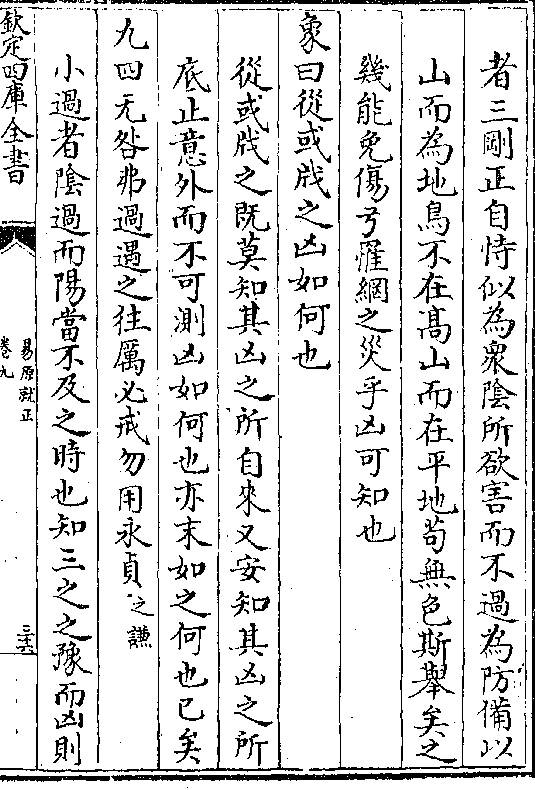 者三剛正自恃似為衆陰所欲害而不過為防備以
山而為地鳥不在髙山而在平地苟無色斯舉矣之
幾能免傷弓罹網之災乎凶可知也
象曰從或戕之凶如何也
從或戕之既莫知其凶之所自來又安知其凶之所
底止意外而不可測凶如何也亦末如之何也已矣
九四无咎弗過遇之往厲必戒勿用永貞之謙
小過者陰過而陽當不及之時也知三之之豫而凶則
欽定四庫全書
易原就正
卷九
三十六